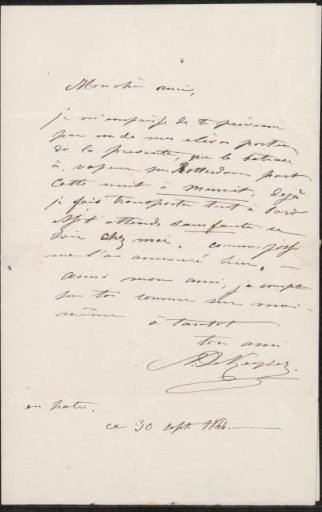 Mon cher ami,
je m'empresse de te prévenir
par un de mes élèves porteur
de la presente, que le bateau
à vapeur sur Rotterdam part
cette nuit à minuit, dejà
je fais transporter tout à bord
et t'attends sans faute ce
soir chez moi, comme
me l'as annoncé hier, —
ainsi mon ami, je compte
sur toi comme sur moi-
même à tantot
ton ami
N. De Keyser.
en hate.
ce 30 sept. 1844.